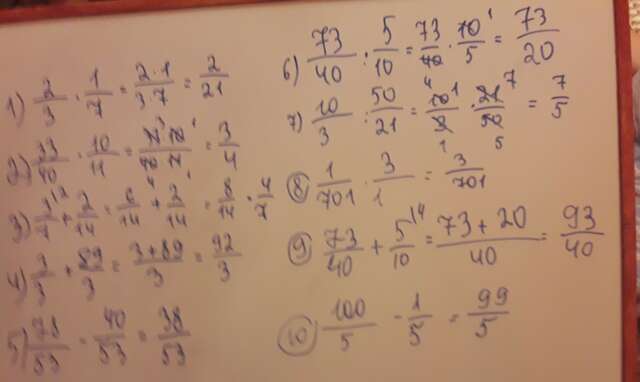 1) 2/3 · 1/7 = 2·1/3·7 = 2/21
2) 33/40 · 10/11 = 3/4
3) 3/7 + 2/14 = 6/14 + 2/14 = 8/14 = 4/7
4) 3/3 + 89/3 = 3+89/3 = 92/3
5) 78/53 - 40/53 = 38/53
6) 73/40 : 5/10 = 73/40 · 10/5 = 73/20
7) 10/3 : 50/21 = 10/3 · 21/50 = 7/5
8) 1/701 · 3/1 = 3/701
9) 73/40 + 5/10 = 73+20/40 = 93/40
10) 100/5 - 1/5 = 99/5